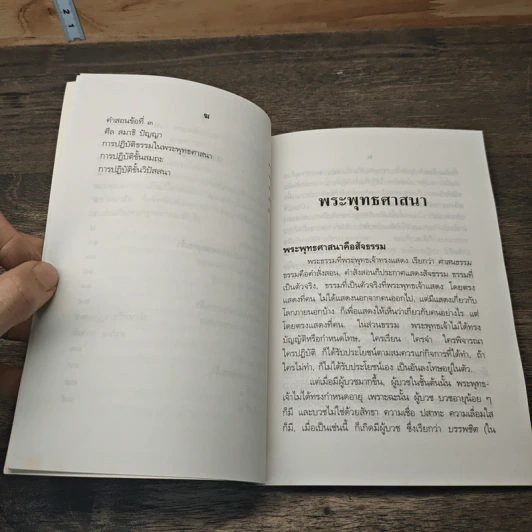 2
ฆ
คำสอนข้อที่ ๓
ศีล สมาธิ ปัญญา
การปฏิบัติธรรมในพระพุทธศาสนา
การปฏิบัติขั้นสมถะ
การปฏิบัติขั้นวิปัสสนา
พระพุทธศาสนา
พระพุทธศาสนาคือสัจธรรม
พระธรรมที่พระพุทธเจ้าทรงแสดง เรียกว่า ศาสนธรรม
ธรรมคือคำสั่งสอน, คำสั่งสอนก็ประกาศแสดงสัจธรรม ธรรมที่
เป็นตัวจริง, ธรรมที่เป็นตัวจริงที่พระพุทธเจ้าแสดง โดยตรง
แสดงที่คน ไม่ได้แสดงนอกจากคนออกไป, แต่มีแสดงเกี่ยวกับ
โลกภายนอกบ้าง ก็เพื่อแสดงให้เห็นว่าเกี่ยวกับคนอย่างไร แต่
โดยตรงแสดงที่คน, ในส่วนธรรม พระพุทธเจ้าไม่ได้ทรง
บัญญัติหรือกำหนดโทษ, ใครเรียน ใครจำ ใครพิจารณา
ใครปฏิบัติ ก็ได้รับประโยชน์ตามสมควรแก่กิจการที่ได้ทำ, ถ้า
ใครไม่ทำ, ก็ไม่ได้รับประโยชน์เอง เป็นอันลงโทษอยู่ในตัว.
แต่เมื่อมีผู้บวชมากขึ้น, ผู้บวชในชั้นต้นนั้น พระพุทธ-
เจ้าไม่ได้ทรงกำหนดอายุ เพราะฉะนั้น ผู้บวช บวชอายุน้อย ๆ
ก็มี และบวชไม่ใช่ด้วยศรัทธา ความเชื่อ ปสาทะ ความเลื่อมใส
ก็มี, เมื่อเป็นเช่นนี้ ก็เกิดมีผู้บวช ซึ่งเรียกว่า บรรพชิต (ใน